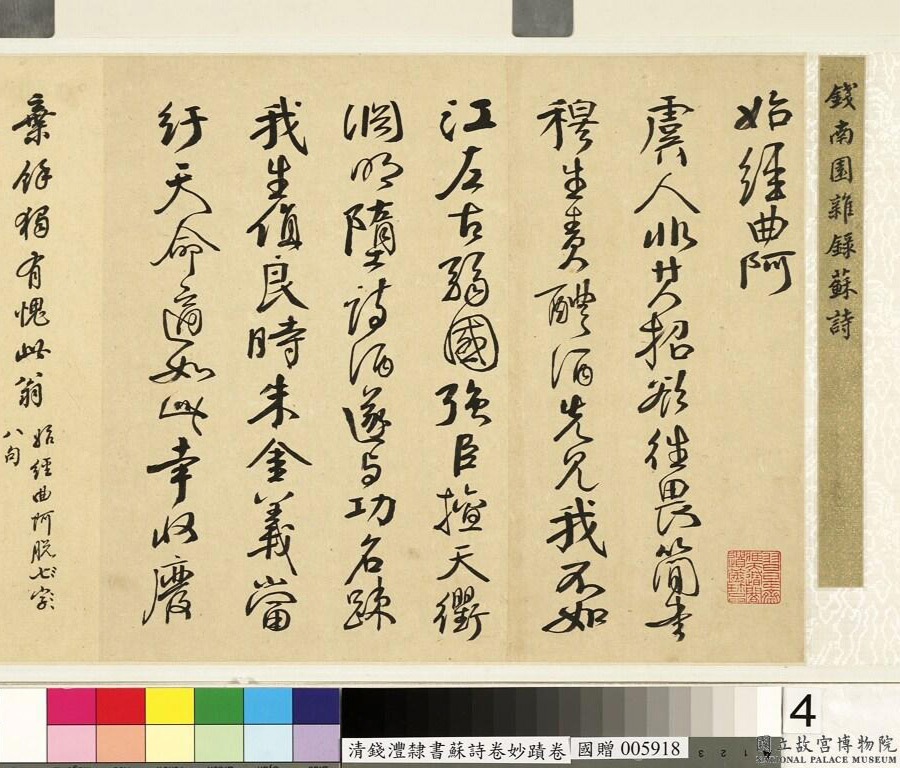 錢南園雜錄蘇詩
始經曲阿
虞人非其招欲往畏簡書
穆生責醴酒先見我不如
江左古弱國強臣擅天衢
淵明墮詩酒遂與功名疎
我生值良時朱金義當
紆天命適如此幸收廢
棄餘獨有愧此翁
始經曲阿脫
八句
4
清錢澧隸書蘇詩卷妙蹟卷 國贈 005918
國立故宮博物院
NATIONAL PALACE MUSEUM